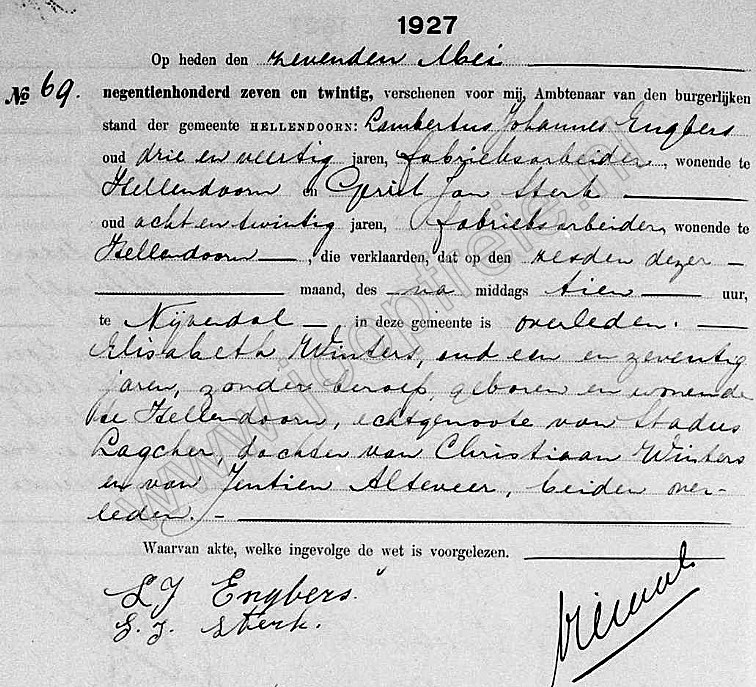 1927
Op heden den zevenden Mei
No 69. negentienhonderd zeven en twintig, verschenen voor mij, Ambtenaar van den burgerlijken
stand der gemeente HELLENDOORN: Lambertus Johannes Engbers
oud drie en veertig jaren, fabrieksarbeider, wonende te
Hellendoorn en Gerrit Jan Sterk
oud acht en twintig jaren, fabrieksarbeider, wonende te
Hellendoorn, die verklaarden, dat op den zesden dezer
maand, des na middags tien uur,
te Nijverdal, in deze gemeente is overleden.
Elisabeth Winters, oud een en zeventig
jaren, zonder beroep, geboren en wonende
te Hellendoorn, echtgenoote van Stadus
Lagcher, dochter van Christiaan Winters
en van Jentien Alteveer, beiden over-
leden.
Waarvan akte, welke ingevolge de wet is voorgelezen.
L J Engbers.
G. J. Sterk.
www.jooptreife.nl